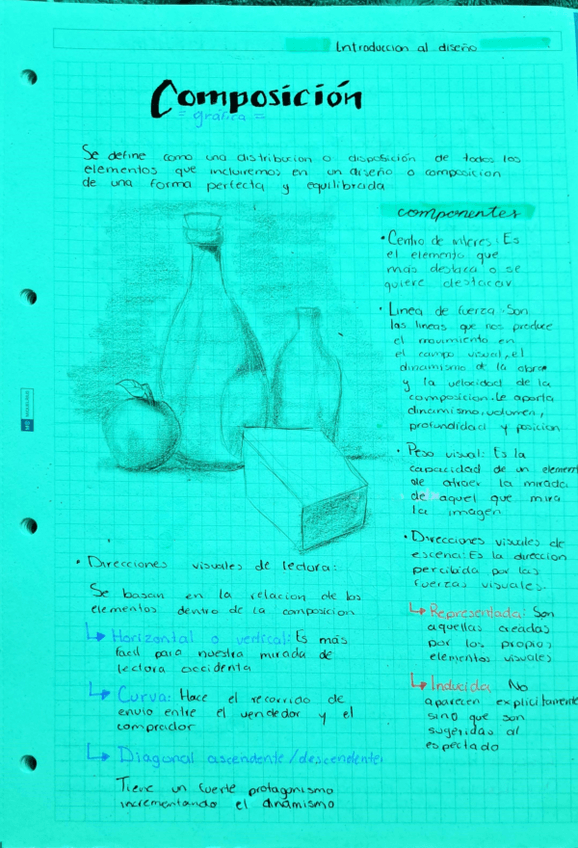 Introduccion al diseño
Composición
= gráfica =
Se define como una distribucion o disposición de todos los
elementos que incluiremos en un diseño o composicion
de una forma perfecta y equilibrada
componentes
• Centro de interes: Es
el elemento que
más destaca o se
quiere destacar
• Linea de fuerza: Son
las lineas que nos produce
el movimiento en
el campo visual, el
dinamismo de la obra
y la velocidad de la
composicion. Le aporta
dinamismo, volumen,
profundidad y posicion
• Peso visual: Es la
capacidad de un element
de atraer la mirada
de aquel que mira
la imagen
• Direcciones visuales de
escena: Es la direccion
percibida por las
fuerzas visuales.
↳ Representada: Son
aquellas creadas
por los propios
elementos visuales
↳ Inducida: No
aparecen explicitamente
sino que son
sugeridas al
espectado
• Direcciones visuales de lectura:
Se basan en la relacion de los
elementos dentro de la composicion
↳ Horizontal o vertical: Es más
facil para nuestra mirada de
lectora occidenta
↳ Curva: Hace el recorrido de
envio entre el vendedor y el
comprador
↳ Diagonal ascendente/descendente:
Tiene un fuerte protagonismo
incrementando el dinamismo